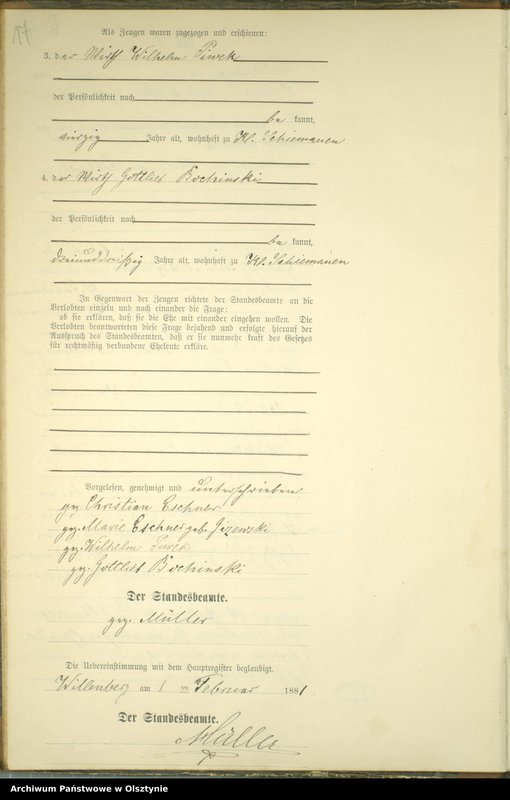 17
Als Zeugen waren zugezogen und erschienen:
3. der Wirth Wilhelm Piwek
der Persönlichkeit nach
be kannt,
vierzig Jahre alt, wohnhaft zu Kl. Schiemanen
4. der Wirth Gottlieb Bochinski
der Persönlichkeit nach
be kannt,
dreiunddreißig Jahre alt, wohnhaft zu Kl. Schiemanen
In Gegenwart der Zeugen richtete der Standesbeamte an die
Verlobten einzeln und nach einander die Frage:
ob sie erklären, daß sie die Ehe mit einander eingehen wollen. Die
Verlobten beantworteten diese Frage bejahend und erfolgte hierauf der
Ausspruch des Standesbeamten, daß er sie nunmehr kraft des Gesetzes
für rechtmäßig verbundene Eheleute erkläre.
Vorgelesen, genehmigt und unterschrieben
gez. Christian Eschner
gez. Marie Eschner geb. Gizewski
gez. Wilhelm Piwek
gez. Gottlieb Bochinski
Der Standesbeamte.
gez. Müller
Die Uebereinstimmung mit dem Hauptregister beglaubigt.
Willenberg am 1 ten Februar 1881.
Der Standesbeamte.
Müller
Archiwum Państwowe w Olsztynie